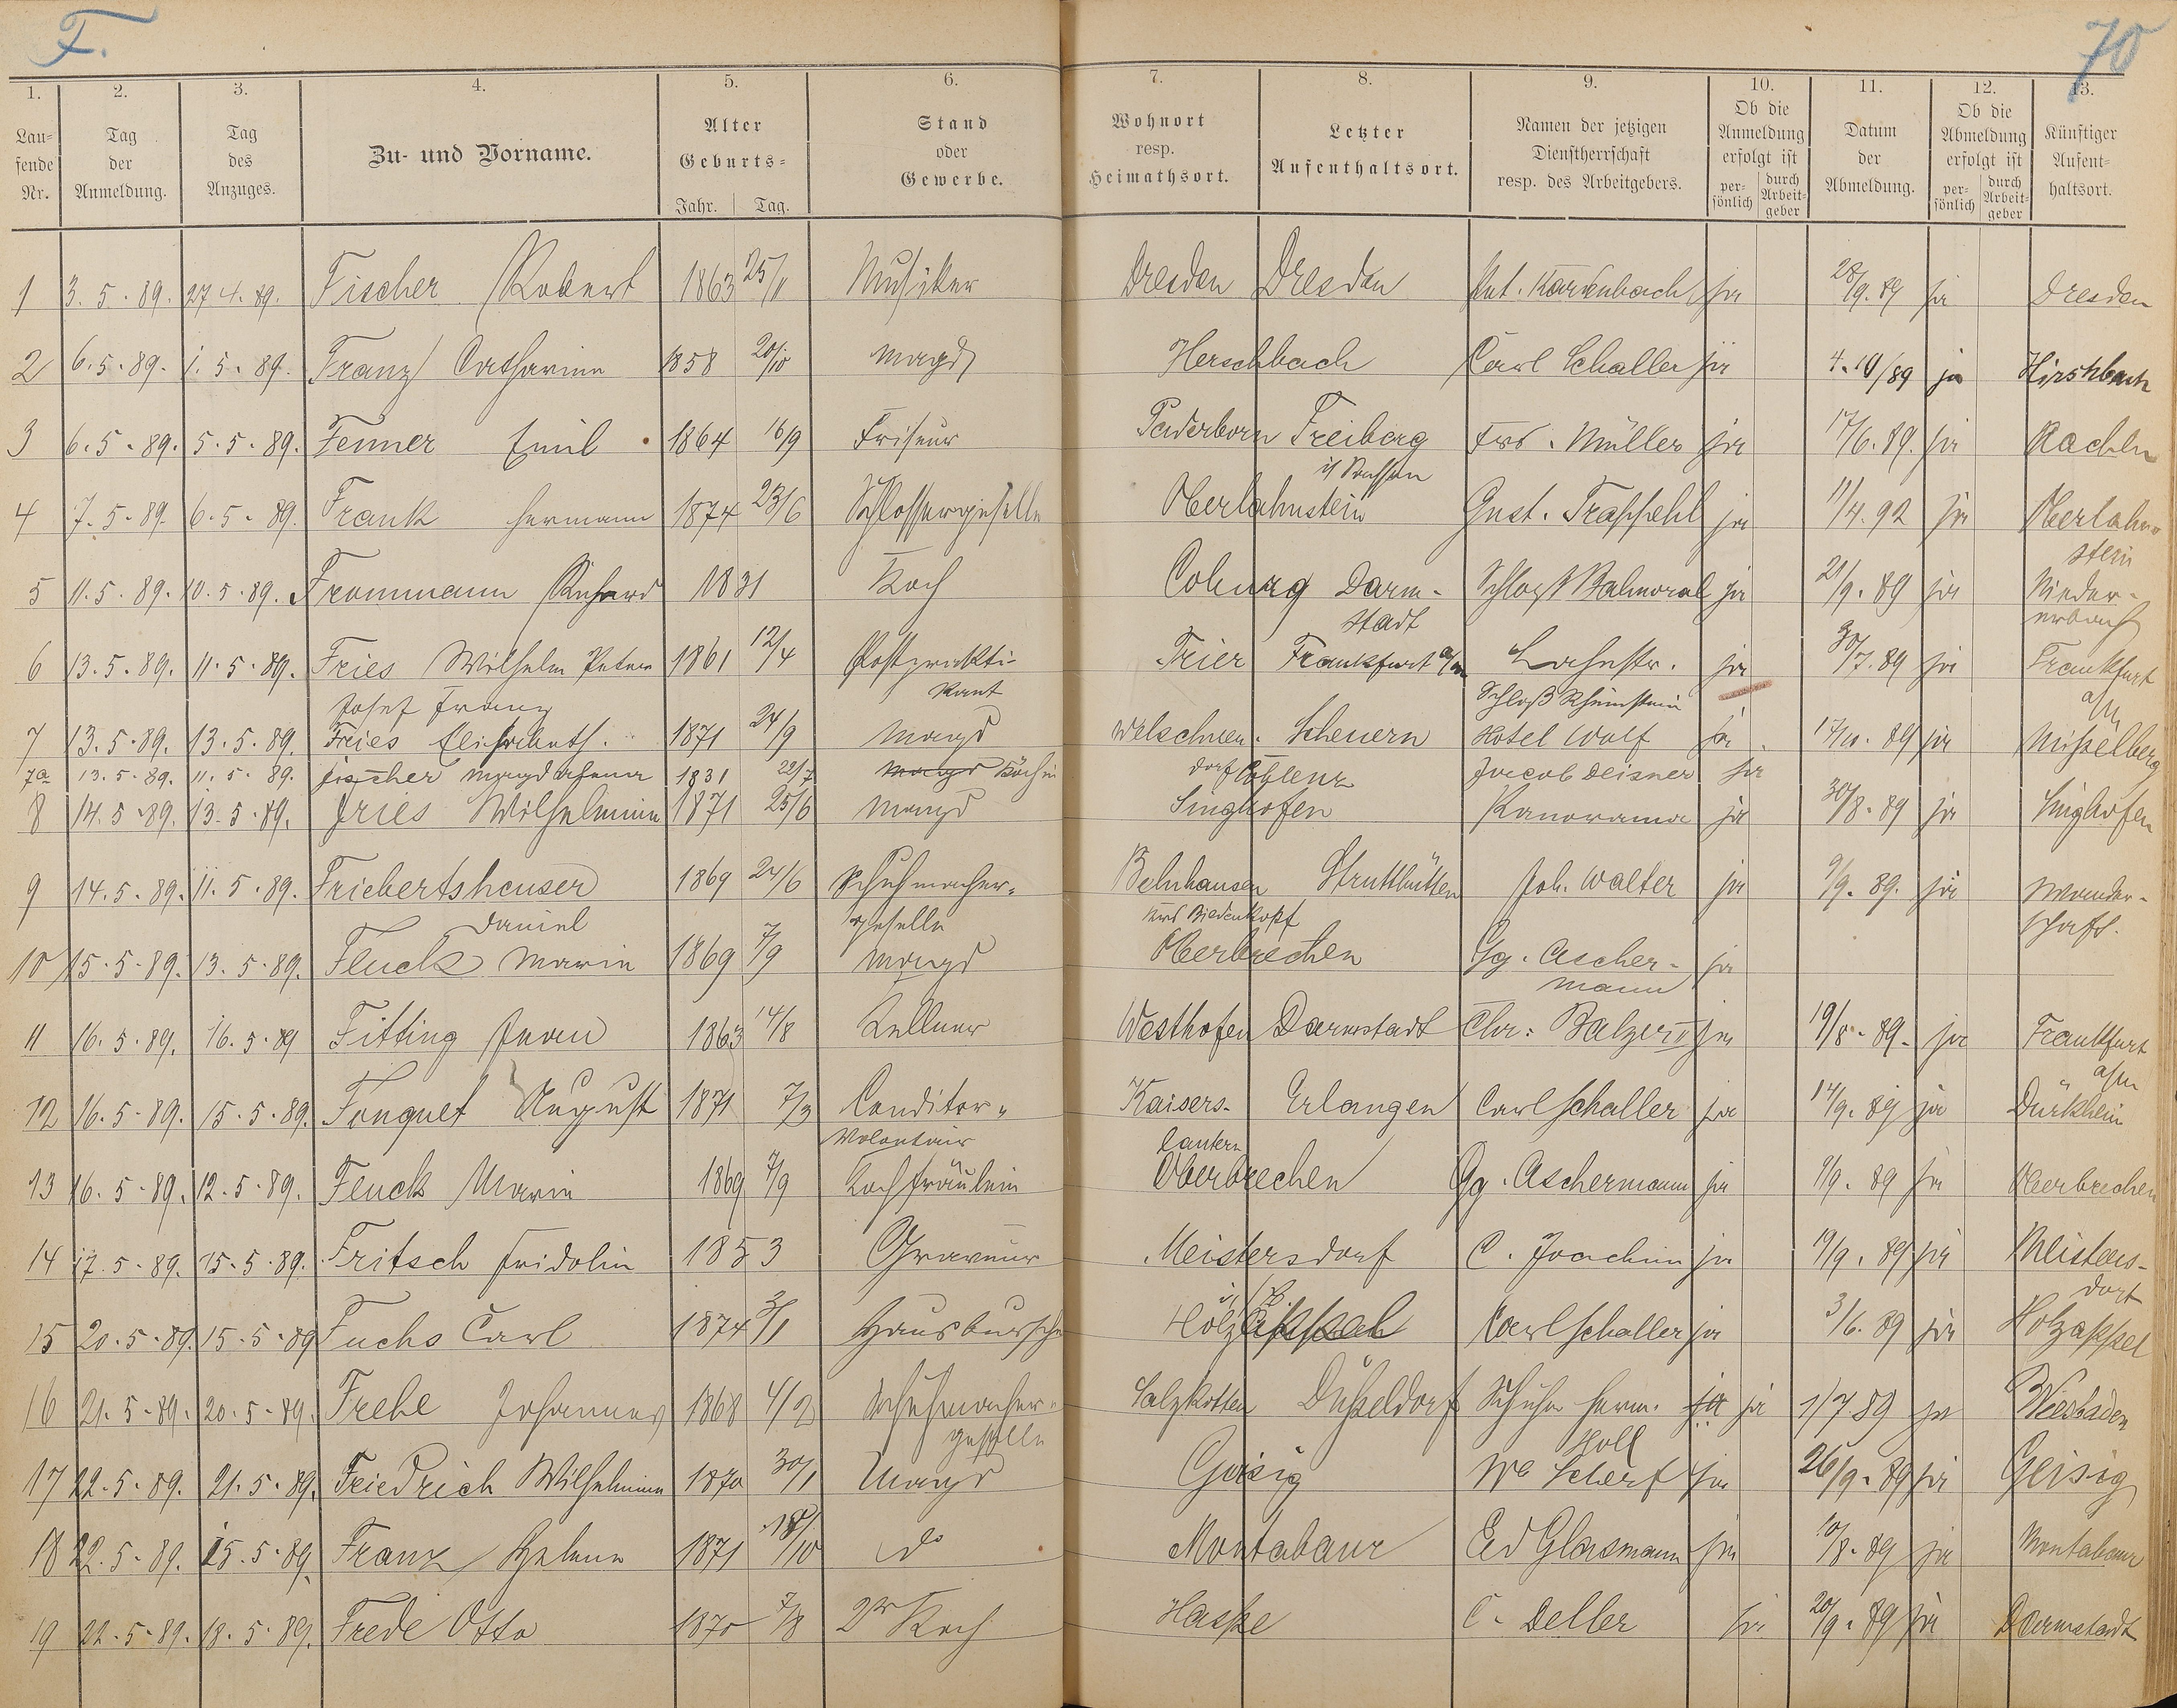 F.
70
1. 2. 3. 4. 5. 6. 7. 8. 9. 10. 11. 12. 13.
Laufende Nr.
Tag der Anmeldung.
Tag des Anzuges.
Zu- und Vorname.
Alter
Geburts-
Jahr. Tag.
Stand oder Gewerbe.
Wohnort resp. Heimathsort.
Letzter Aufenthaltsort.
Namen der jetzigen Dienstherrschaft resp. des Arbeitgebers.
Ob die Anmeldung erfolgt ist
persönlich durch Arbeitgeber
Datum der Abmeldung.
Ob die Abmeldung erfolgt ist
persönlich durch Arbeitgeber
Künftiger Aufenthaltsort.
1 3. 5. 89. 27 4. 89. Fischer Robert 1863 25/11 Musiker Dresden Dresden ja 28/9. 89 ja Dresden
2 6. 5. 89. 1. 5. 89. Franz Catharina 1858 20/10 Magd Herschbach Carl Schaller ja 4. 10/89 ja Hirshbach
3 6. 5. 89. 5. 5. 89. Fenner Emil 1864 16/9 Friseur Paderborn Freiberg i/ Sachsen Frd. Müller ja 17/6. 89. ja Aachen
4 7. 5. 89. 6. 5. 89. Frank Hermann 1874 23/6 Schlossergeselle Oberlahnstein Gust. Trappehl ja 11/4. 92 ja Oberlahnstein
5 11. 5. 89. 10. 5. 89. Frommann Richard 1831 Koch Coburg Darmstadt Schloß Balmoral ja 21/9. 89 ja
6 13. 5. 89. 11. 5. 89. Fries Wilhelm Peter Josef Franz 1861 12/4 Postpraktikant Trier Frankfurt a/m Lahnstr. Schloß Rheinstein ja 30/7. 89 ja Frankfurt a/M
7 13. 5. 89. 13. 5. 89. Fries Elisabeth. 1871 24/9 Magd Welschneudorf Scheuern Hotel Wolf ja 17/10. 89 ja Misselberg
7a 13. 5. 89. 11. 5. 89. Fischer Magdalena 1831 22/7 Magd Köchin Coblenz Jacob Deisner ja
8 14. 5. 89. 13. 5. 89. Fries Wilhelmine 1871 25/6 Magd Singhofen Panorama ja 30/8. 89 ja Singhofen
9 14. 5. 89. 11. 5. 89. Friebertshäuser Daniel 1869 24/6 Schuhmachergeselle Kreis Biedenkopf Struthütten Joh. Walter ja 9/9. 89. ja Wanderschaft.
10 15. 5. 89. 13. 5. 89. Fluck Maria 1869 7/9 Magd Oberbrechen Gg. Aschermann ja
11 16. 5. 89. 16. 5. 89 Fitting 1863 14/8 Kellner Westhofen Darmstadt Chr. Balzer II ja 19/8. 89. ja Frankfurt a/m
12 16. 5. 89. 15. 5. 89. Fouquet August 1871 7/3 Conditor-Volontair Kaiserslautern Erlangen Carl Schaller ja 14/9. 89 ja Dürkheim
13 16. 5. 89. 12. 5. 89. Fluck Maria 1869 7/9 Kochfräulein Oberbrechen Gg. Aschermann ja 9/9. 89 ja Oberbrechen
14 17. 5. 89. 15. 5. 89. Fritsch Fridolin 1853 Graveur Meistersdorf i/B. C. Joachim ja 19/9. 89 ja Meistersdorf
15 20. 5. 89. 15. 5. 89 Fuchs Carl 1874 3/1 Hausbursche Holzappel Carl Schaller ja 3/6. 89 ja Holzappel
16 21. 5. 89. 20. 5. 89. Frehe Johannes 1868 4/2 Schuhmachergeselle Salzkotten Düsseldorf Schuhm Herm. Holl ja ja 1/7 89 ja Wiesbaden
17 22. 5. 89. 21. 5. 89. Friedrich Wilhelmine 1870 30/1 Magd Geisig We Scherf ja 26/9. 89 ja Geisig
18 22. 5. 89. 15. 5. 89. Franz Helene 1871 18/10 do Montabaur Ed Glasmann ja 10/8. 89 ja Montabaur
19 22. 5. 89. 18. 5. 89. Frede Otto 1870 7/8 2r Koch Haspe C. Deller ja 20/9. 89 ja Darmstadt